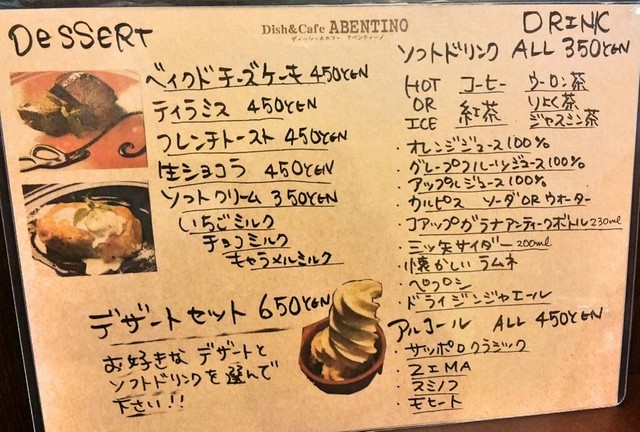 Dish&Cafe ABENTINO
ディッシュ&カフェ アベンティーノ
DESSERT
ベイクドチーズケーキ 450YEN
ティラミス 450YEN
フレンチトースト 450YEN
生ショコラ 450YEN
ソフトクリーム 350YEN
いちごミルク
チョコミルク
キャラメルミルク
デザートセット 650YEN
お好きなデザートと
ソフトドリンクを選んで
下さい!!
DRINK
ソフトドリンク ALL 350YEN
HOT コーヒー ウーロン茶
OR 紅茶 りょく茶
ICE ジャスミン茶
・オレンジジュース100%
・グレープフルーツジュース100%
・アップルジュース100%
・カルピス ソーダORウォーター
・コアップガラナアンティークボトル230ml
・三ツ矢サイダー200ml
・懐かしいラムネ
・ペプシ
・ドライジンジャエール
アルコール ALL 450YEN
・サッポロクラシック
・ZIMA
・スミノフ
・モヒート